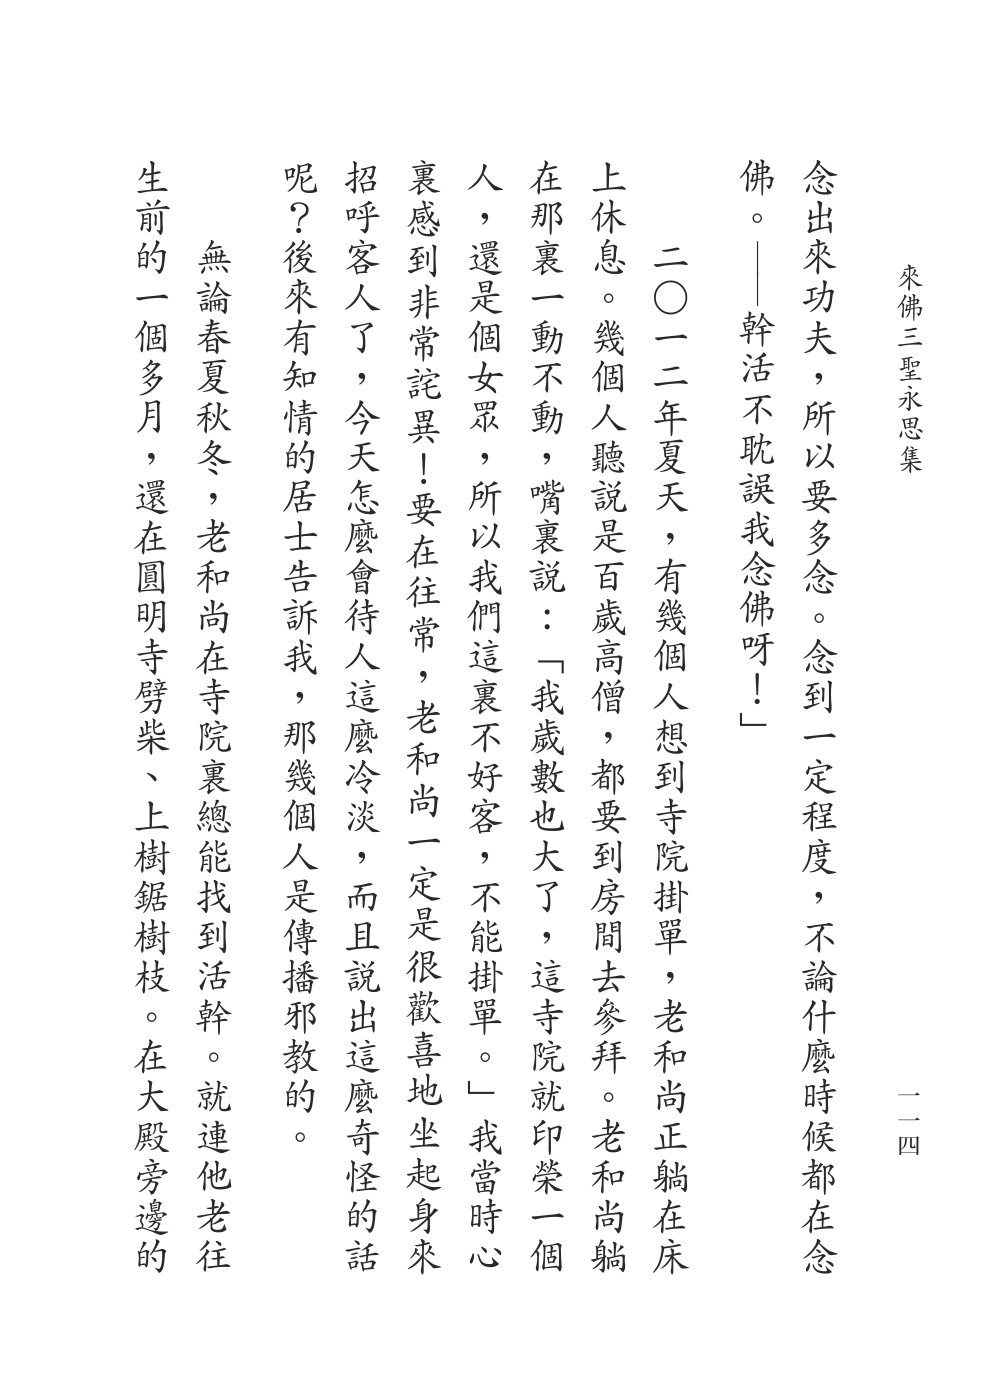 來佛三聖永思集
一一四
念出來功夫，所以要多念。念到一定程度，不論什麼時候都在念
佛。——幹活不耽誤我念佛呀！」
二〇一二年夏天，有幾個人想到寺院掛單，老和尚正躺在床
上休息。幾個人聽説是百歲高僧，都要到房間去參拜。老和尚躺
在那裏一動不動，嘴裏説：「我歲數也大了，這寺院就印榮一個
人，還是個女眾，所以我們這裏不好客，不能掛單。」我當時心
裏感到非常詫異！要在往常，老和尚一定是很歡喜地坐起身來
招呼客人了，今天怎麼會待人這麼冷淡，而且説出這麼奇怪的話
呢？後來有知情的居士告訴我，那幾個人是傳播邪教的。
無論春夏秋冬，老和尚在寺院裏總能找到活幹。就連他老往
生前的一個多月，還在圓明寺劈柴、上樹鋸樹枝。在大殿旁邊的